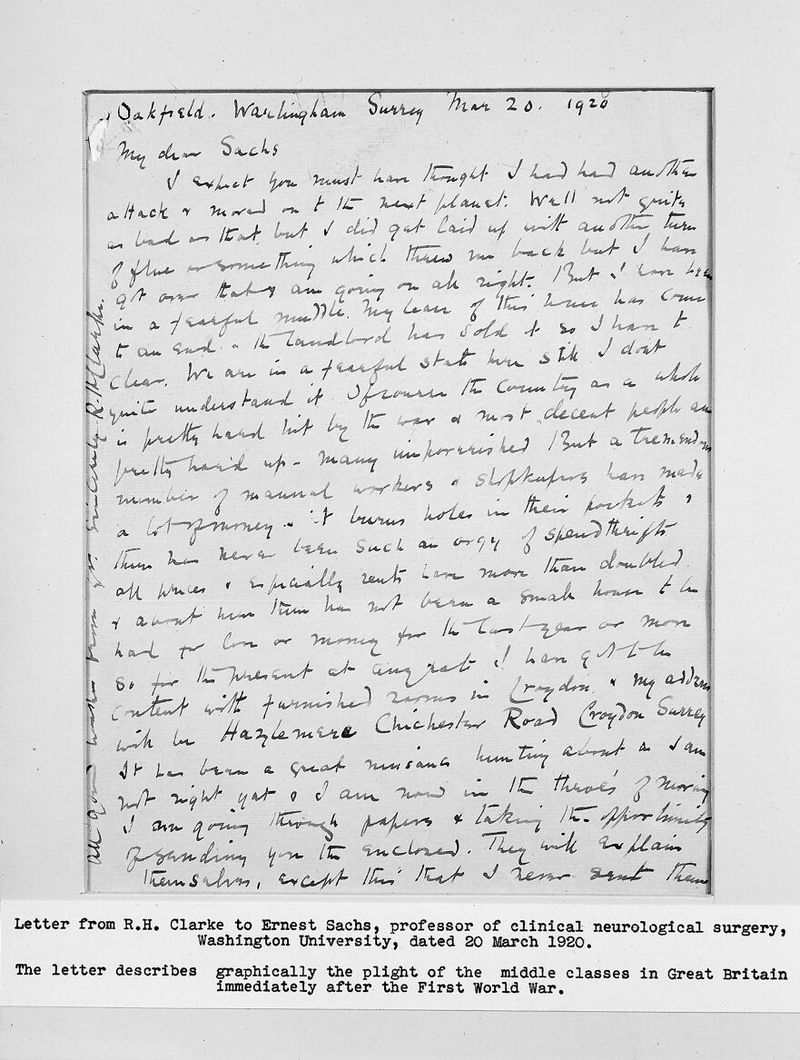 Oakfield. Warlingham Surrey Mar 20. 1920
My dear Sachs
I expect you must have thought I had had another
attack & moved on to the next planet. Well not quite
as bad as that, but I did get laid up with another turn
of flue or something which threw me back but I have
got over that & am going on all right. But I have been
in a fearful muddle. My lease of this house has come
to an end & the landlord has sold it so I have to
clear. We are in a fearful state here still I dont
quite understand it. Of course the country as a whole
is pretty hard hit by the war & most decent people are
pretty hard up - many impoverished But a tremendous
number of manual workers & shopkeepers have made
a lot of money & it burns holes in their pockets &
there has never been such an orgy of spendthrifts
all prices & especially rents have more than doubled.
& about here there has not been a small house to be
had for love or money for the last year or more
so for the present at any rate I have got to be
content with furnished rooms in Croydon, & my address
will be Hazlemere Chichester Road Croydon Surrey
It has been a great nuisance hunting about as I am
not right yet & I am now in the throes of moving
I am going through papers & taking the opportunity
of sending you the enclosed. They will explain
themselves, except this that I never sent them
All good wishes from yrs. sincerely R.H. Clarke.
Letter from R.H. Clarke to Ernest Sachs, professor of clinical neurological surgery,
Washington University, dated 20 March 1920.
The letter describes graphically the plight of the middle classes in Great Britain
immediately after the First World War.